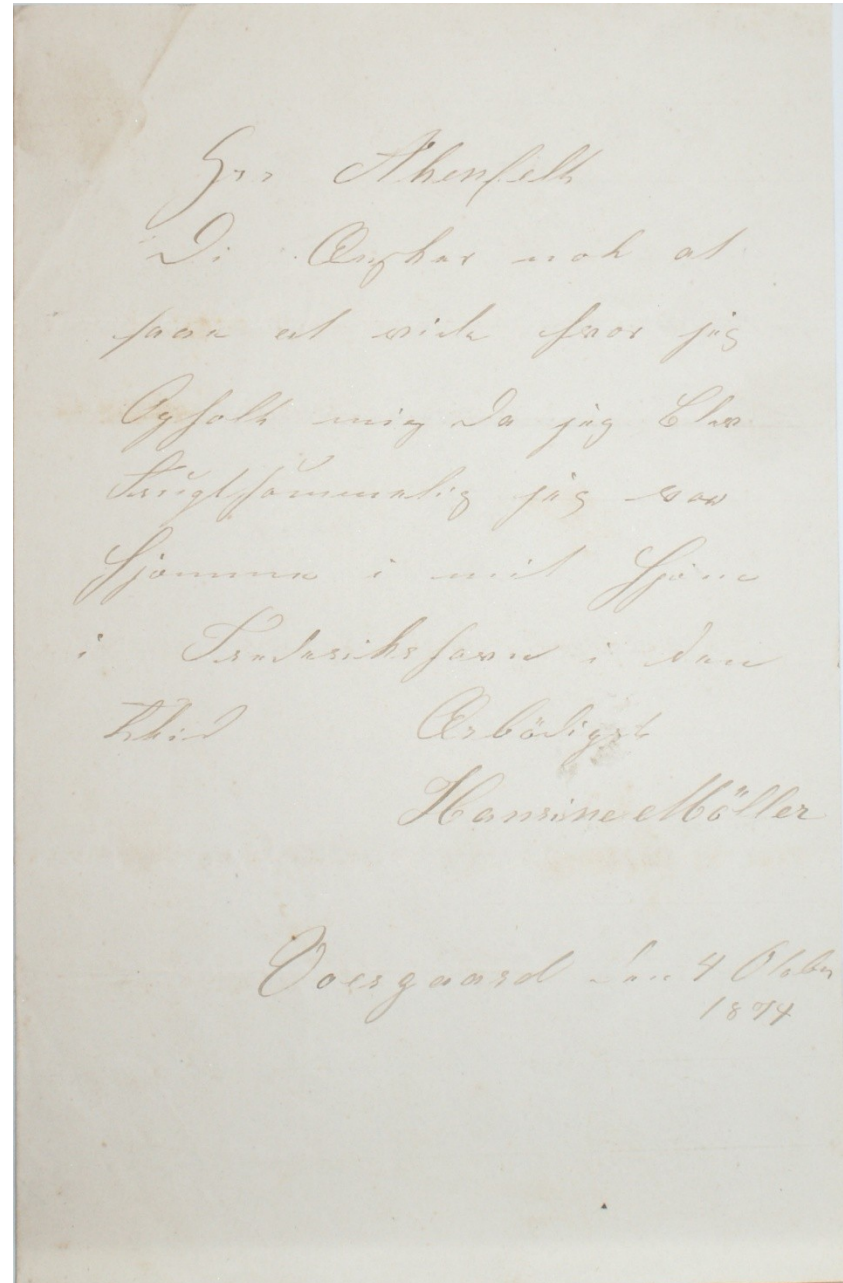 Hrr Ahlenfelt
Di Ønsker nok at
faae at vide hvor jeg
Opholt mig da jeg blev
frugtsommelig jeg var
hjemme i mit hjem
i Frederikshavn i den
thid Ærbödigst
Hansine Möller
Voergaard den 4 Oktober
1874